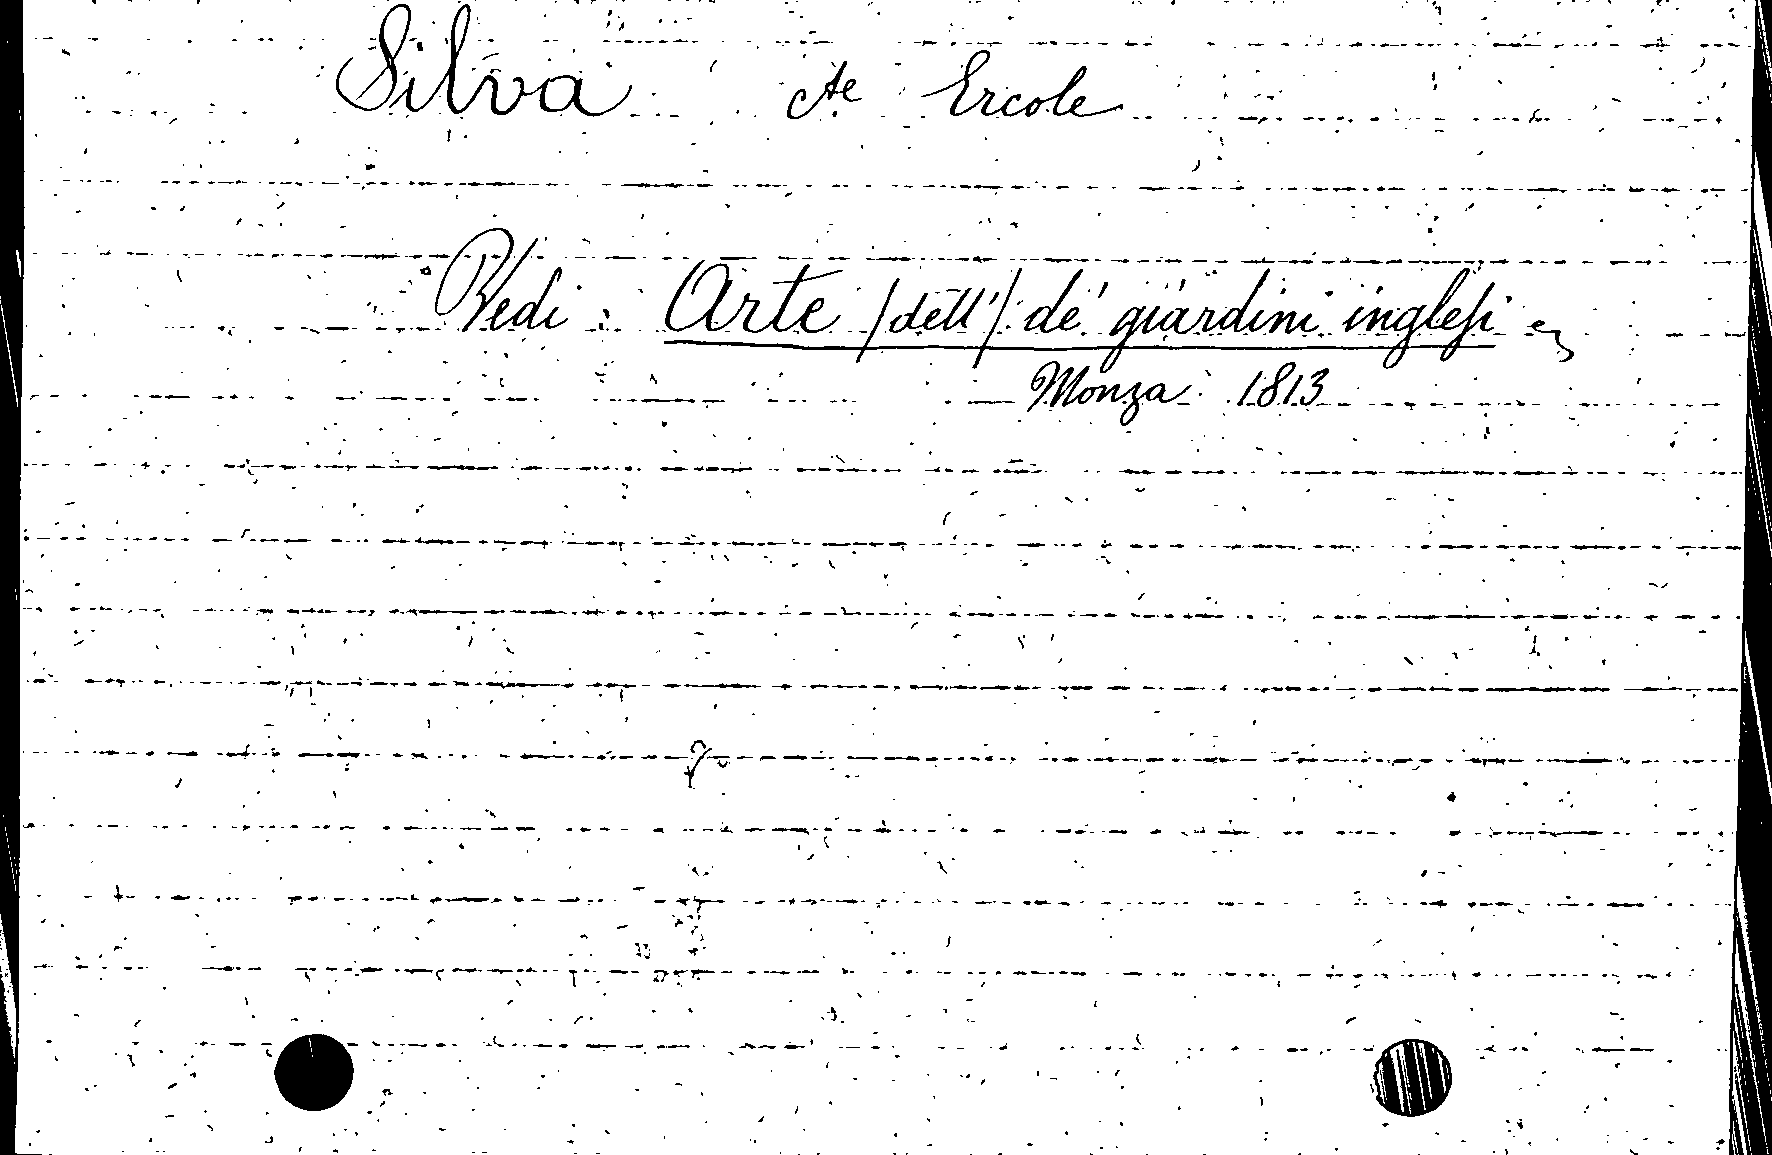 Silva cte Ercole
Vedi: Arte /dell'/ de' giardini inglesi
— Monza 1813